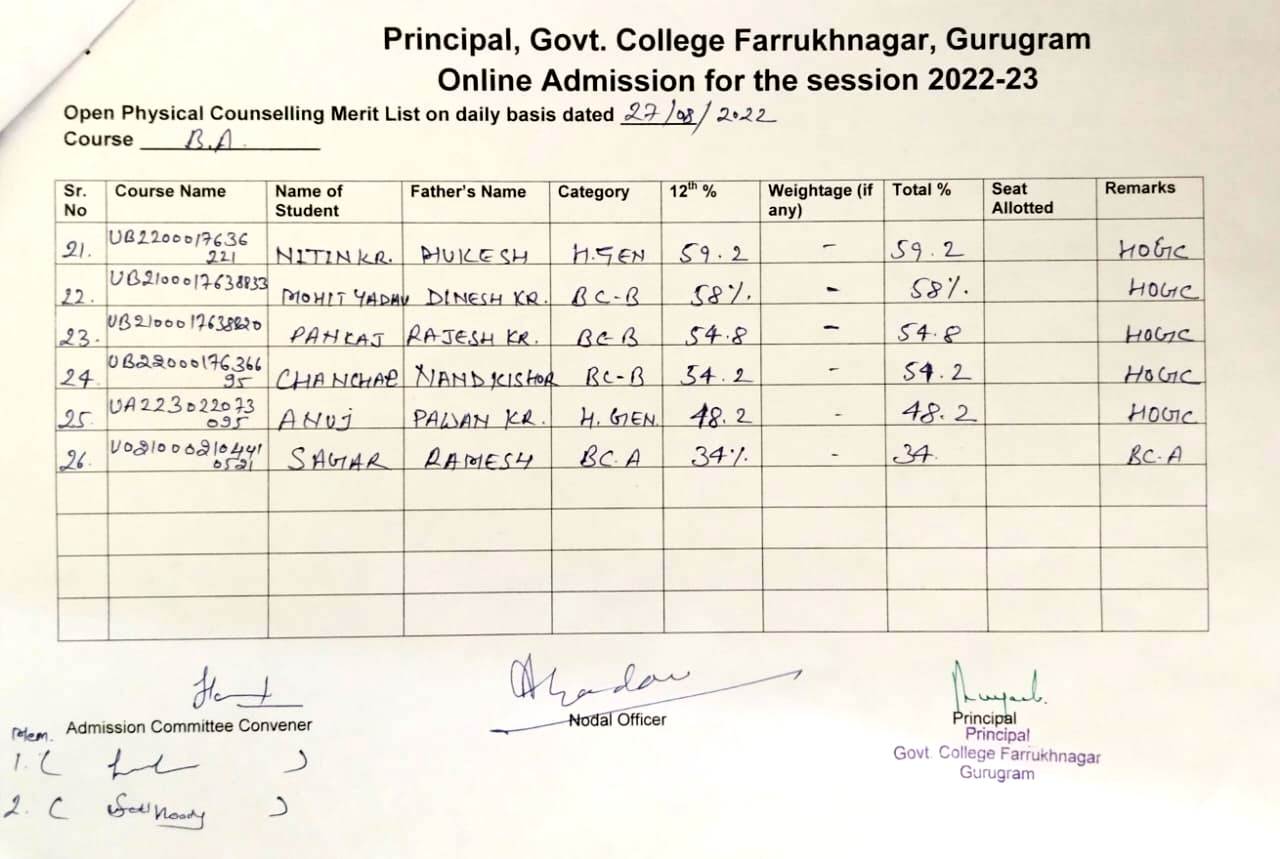 Principal, Govt. College Farrukhnagar, Gurugram
Online Admission for the session 2022-23
Open Physical Counselling Merit List on daily basis dated 27/08/2022
Course B.A.
Sr. No Course Name Name of Student Father's Name Category 12th % Weightage (if any) Total % Seat Allotted Remarks
21. UB2200017636221 NITIN KR. MUKESH H.GEN 59.2 - 59.2 HOGC
22. UB2100017638833 MOHIT YADAV DINESH KR. BC-B 58% - 58% HOGC
23. UB2100017638820 PANKAJ RAJESH KR. BC-B 54.8 - 54.8 HOGC
24. UB2200017636695 CHANCHAL NANDKISHOR BC-B 54.2 - 54.2 HOGC
25. UA223022073095 ANUJ PAWAN KR. H.GEN. 48.2 - 48.2 HOGC
26. SAGAR RAMESH BC.A 34% - 34. BC.A
Admission Committee Convener Nodal Officer Principal
Principal
Govt. College Farrukhnagar
Gurugram
Mem.
1. ( )
2. ( )